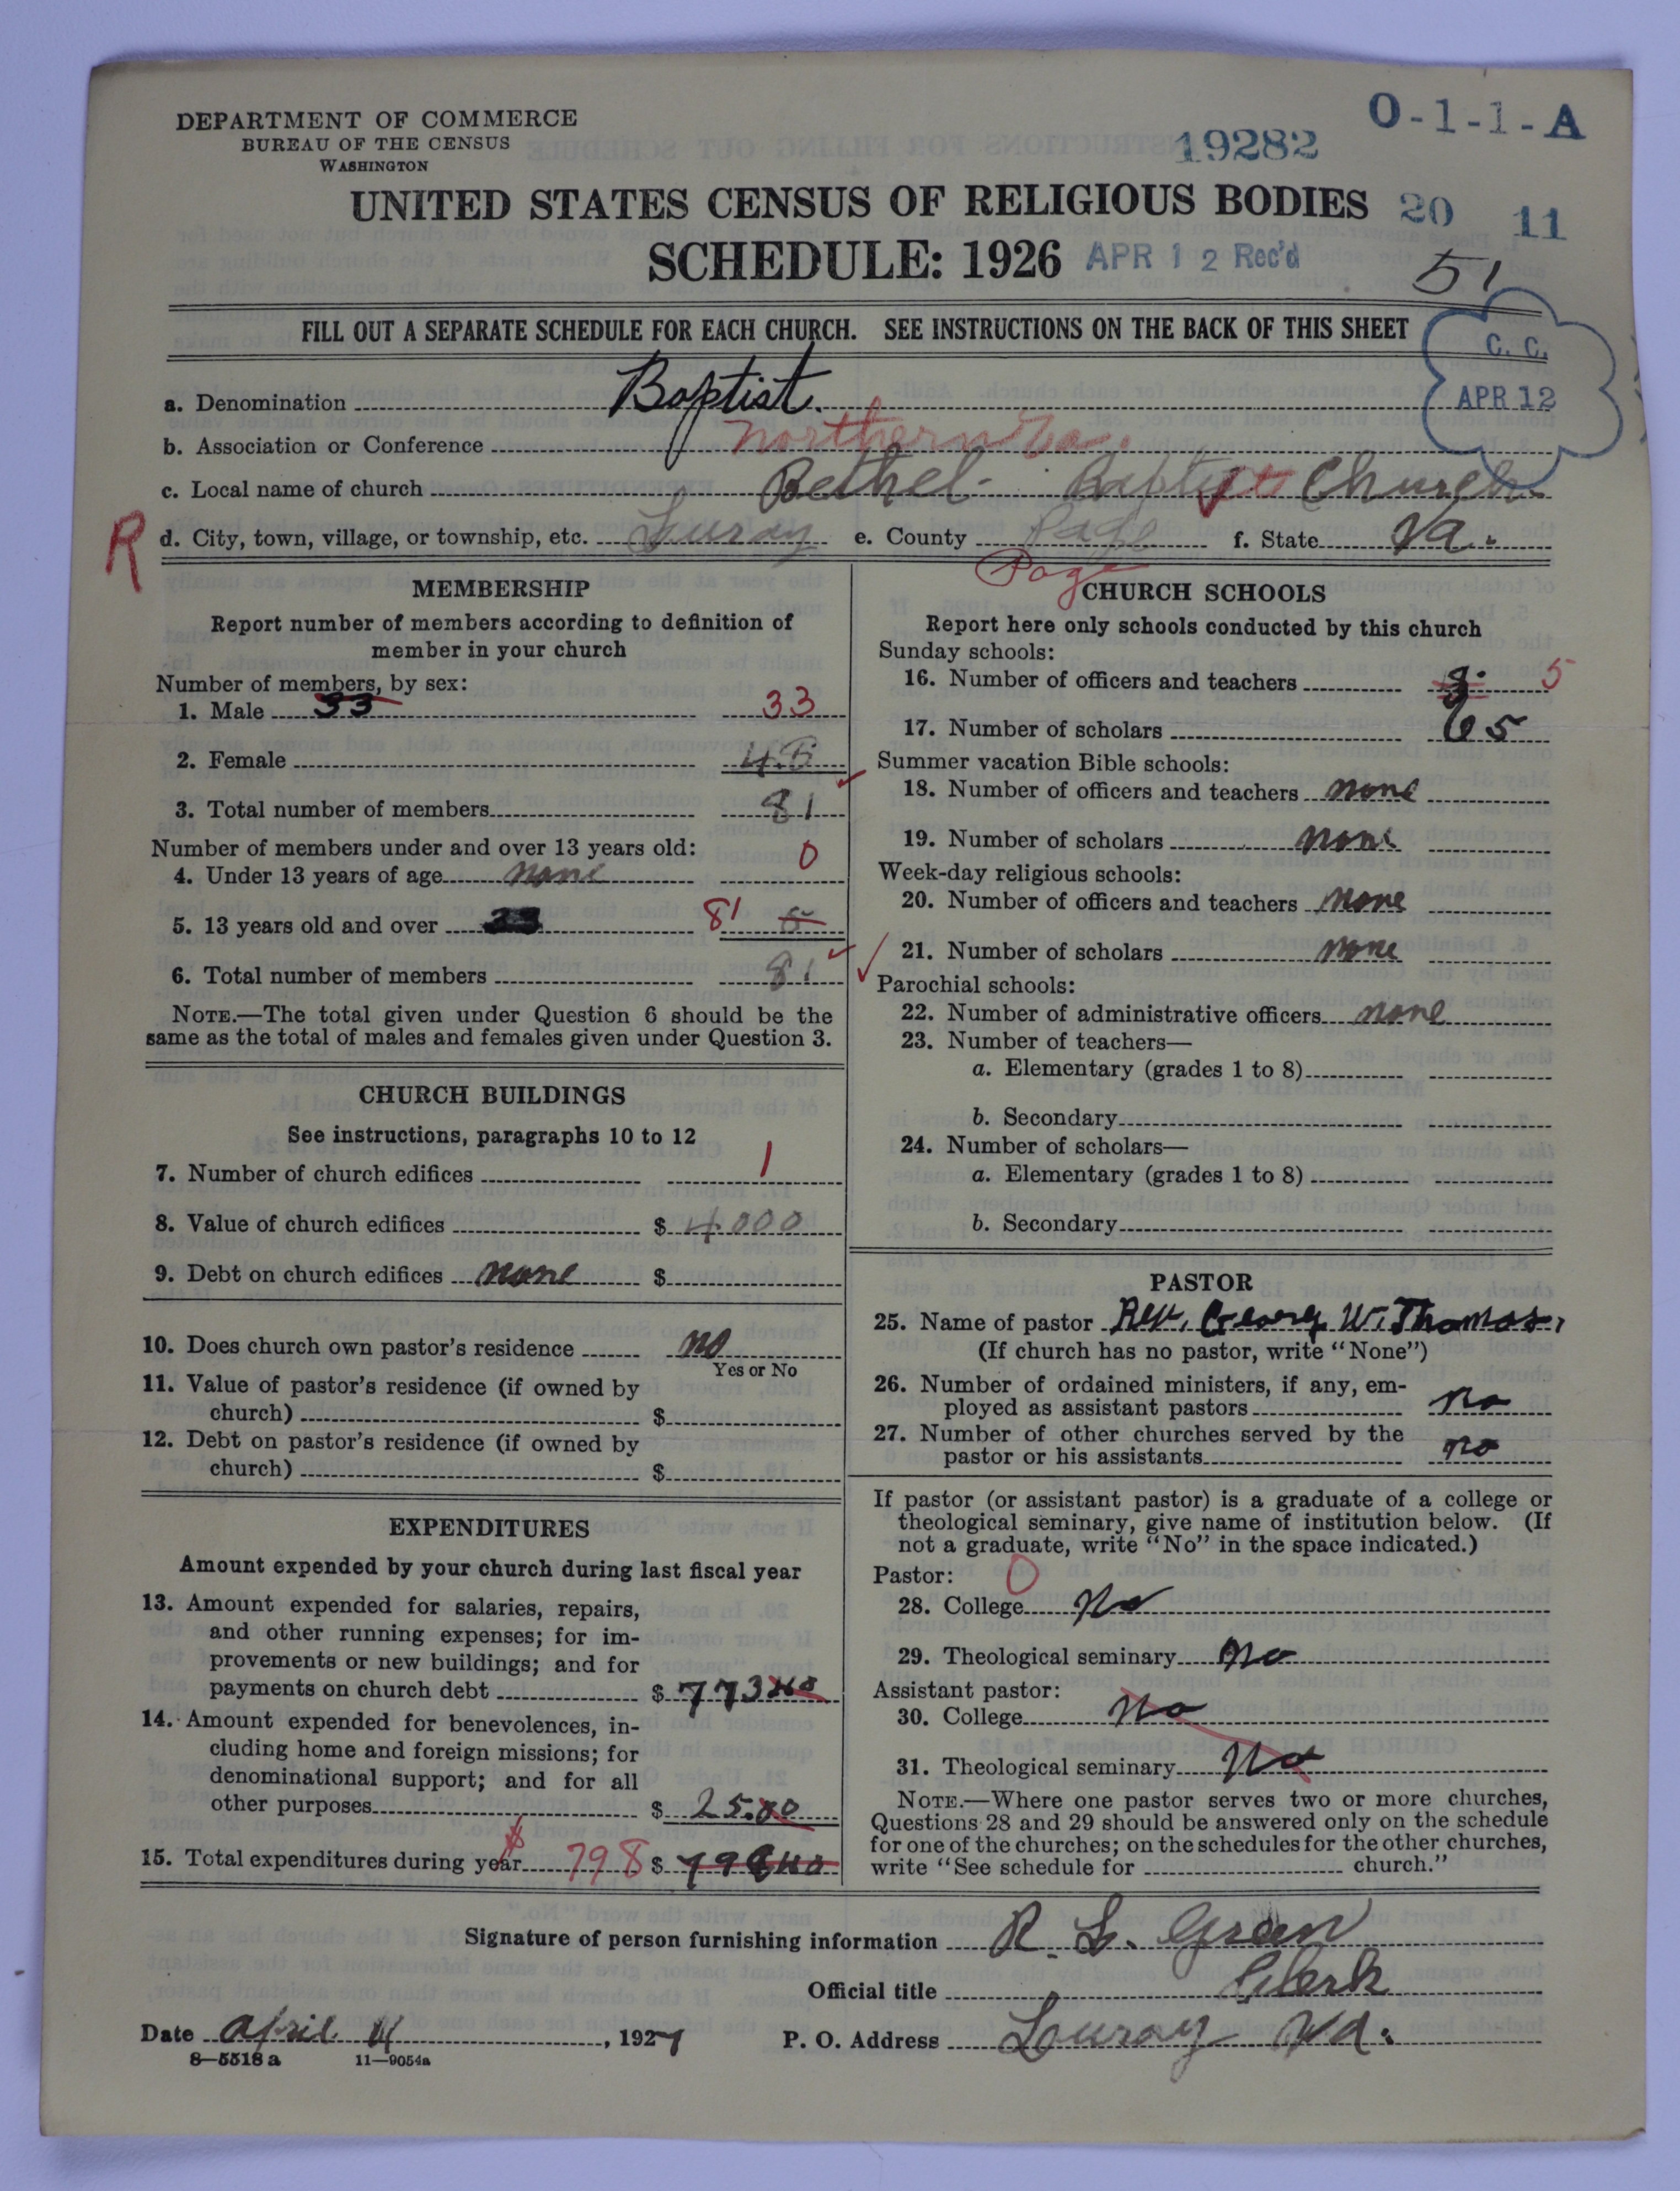 DEPARTMENT OF COMMERCE
BUREAU OF THE CENSUS
WASHINGTON
19282 O-1-1-A
UNITED STATES CENSUS OF RELIGIOUS BODIES 20 11
SCHEDULE: 1926 APR 12 Rec'd 51
FILL OUT A SEPARATE SCHEDULE FOR EACH CHURCH. SEE INSTRUCTIONS ON THE BACK OF THIS SHEET
C. C.
APR 12
a. Denomination Baptist.
b. Association or Conference Northern Va.
c. Local name of church Bethel Baptist Church.
R d. City, town, village, or township, etc. Luray e. County Page f. State Va.
Page
MEMBERSHIP
Report number of members according to definition of
member in your church
Number of members, by sex:
1. Male 33 33
2. Female 48
3. Total number of members 81
Number of members under and over 13 years old:
4. Under 13 years of age none 0
5. 13 years old and over 81
6. Total number of members 81
NOTE.—The total given under Question 6 should be the
same as the total of males and females given under Question 3.
CHURCH BUILDINGS
See instructions, paragraphs 10 to 12
7. Number of church edifices 1
8. Value of church edifices $ 4000
9. Debt on church edifices none $
10. Does church own pastor's residence no
Yes or No
11. Value of pastor's residence (if owned by
church) $
12. Debt on pastor's residence (if owned by
church) $
EXPENDITURES
Amount expended by your church during last fiscal year
13. Amount expended for salaries, repairs,
and other running expenses; for im-
provements or new buildings; and for
payments on church debt $ 773 40
14. Amount expended for benevolences, in-
cluding home and foreign missions; for
denominational support; and for all
other purposes $ 25.00
15. Total expenditures during year $ 798 $ 798 40
CHURCH SCHOOLS
Report here only schools conducted by this church
Sunday schools:
16. Number of officers and teachers 5
17. Number of scholars 65
Summer vacation Bible schools:
18. Number of officers and teachers none
19. Number of scholars none
Week-day religious schools:
20. Number of officers and teachers none
21. Number of scholars none
Parochial schools:
22. Number of administrative officers none
23. Number of teachers—
a. Elementary (grades 1 to 8)
b. Secondary
24. Number of scholars—
a. Elementary (grades 1 to 8)
b. Secondary
PASTOR
25. Name of pastor Rev. Georg W. Thomas,
(If church has no pastor, write "None")
26. Number of ordained ministers, if any, em-
ployed as assistant pastors no
27. Number of other churches served by the
pastor or his assistants no
If pastor (or assistant pastor) is a graduate of a college or
theological seminary, give name of institution below. (If
not a graduate, write "No" in the space indicated.)
Pastor: 0
28. College No
29. Theological seminary No
Assistant pastor:
30. College No
31. Theological seminary No
NOTE.—Where one pastor serves two or more churches,
Questions 28 and 29 should be answered only on the schedule
for one of the churches; on the schedules for the other churches,
write "See schedule for church."
Signature of person furnishing information R. L. Green
Official title Clerk
Date April 11, 1927 P. O. Address Louray Va.
8—5518 a 11—9054a